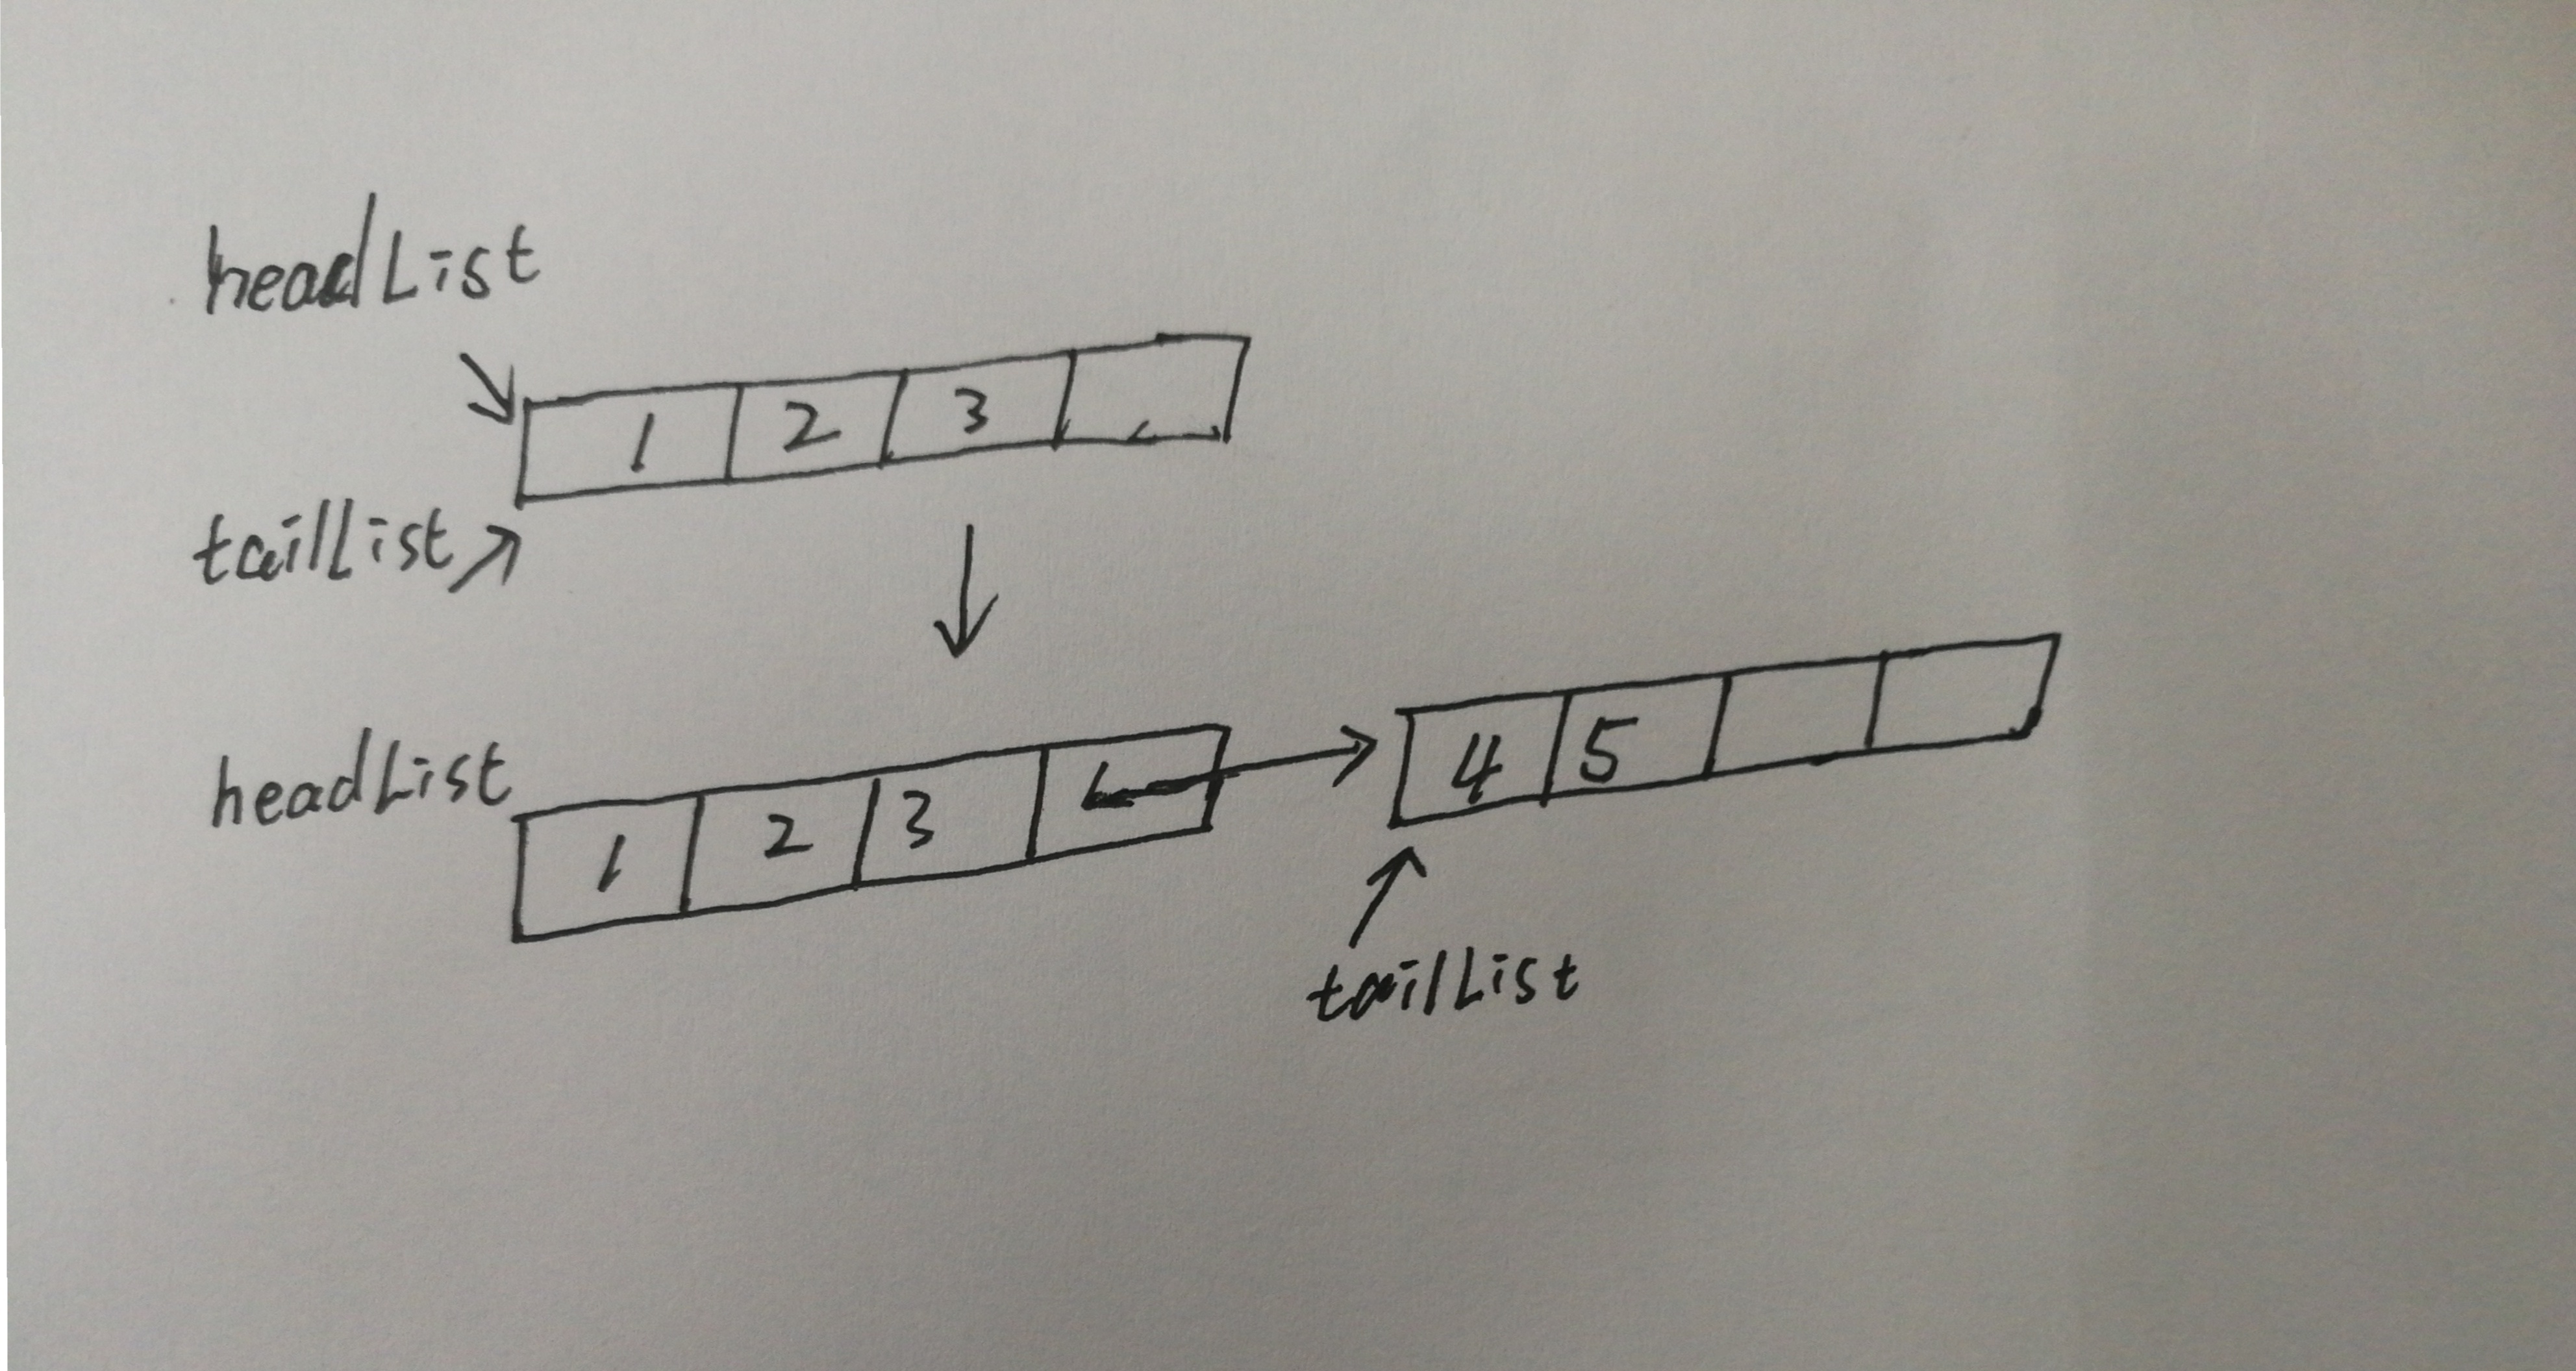 headList
1 2 3
tailList
headList
1 2 3
4 5
tailList